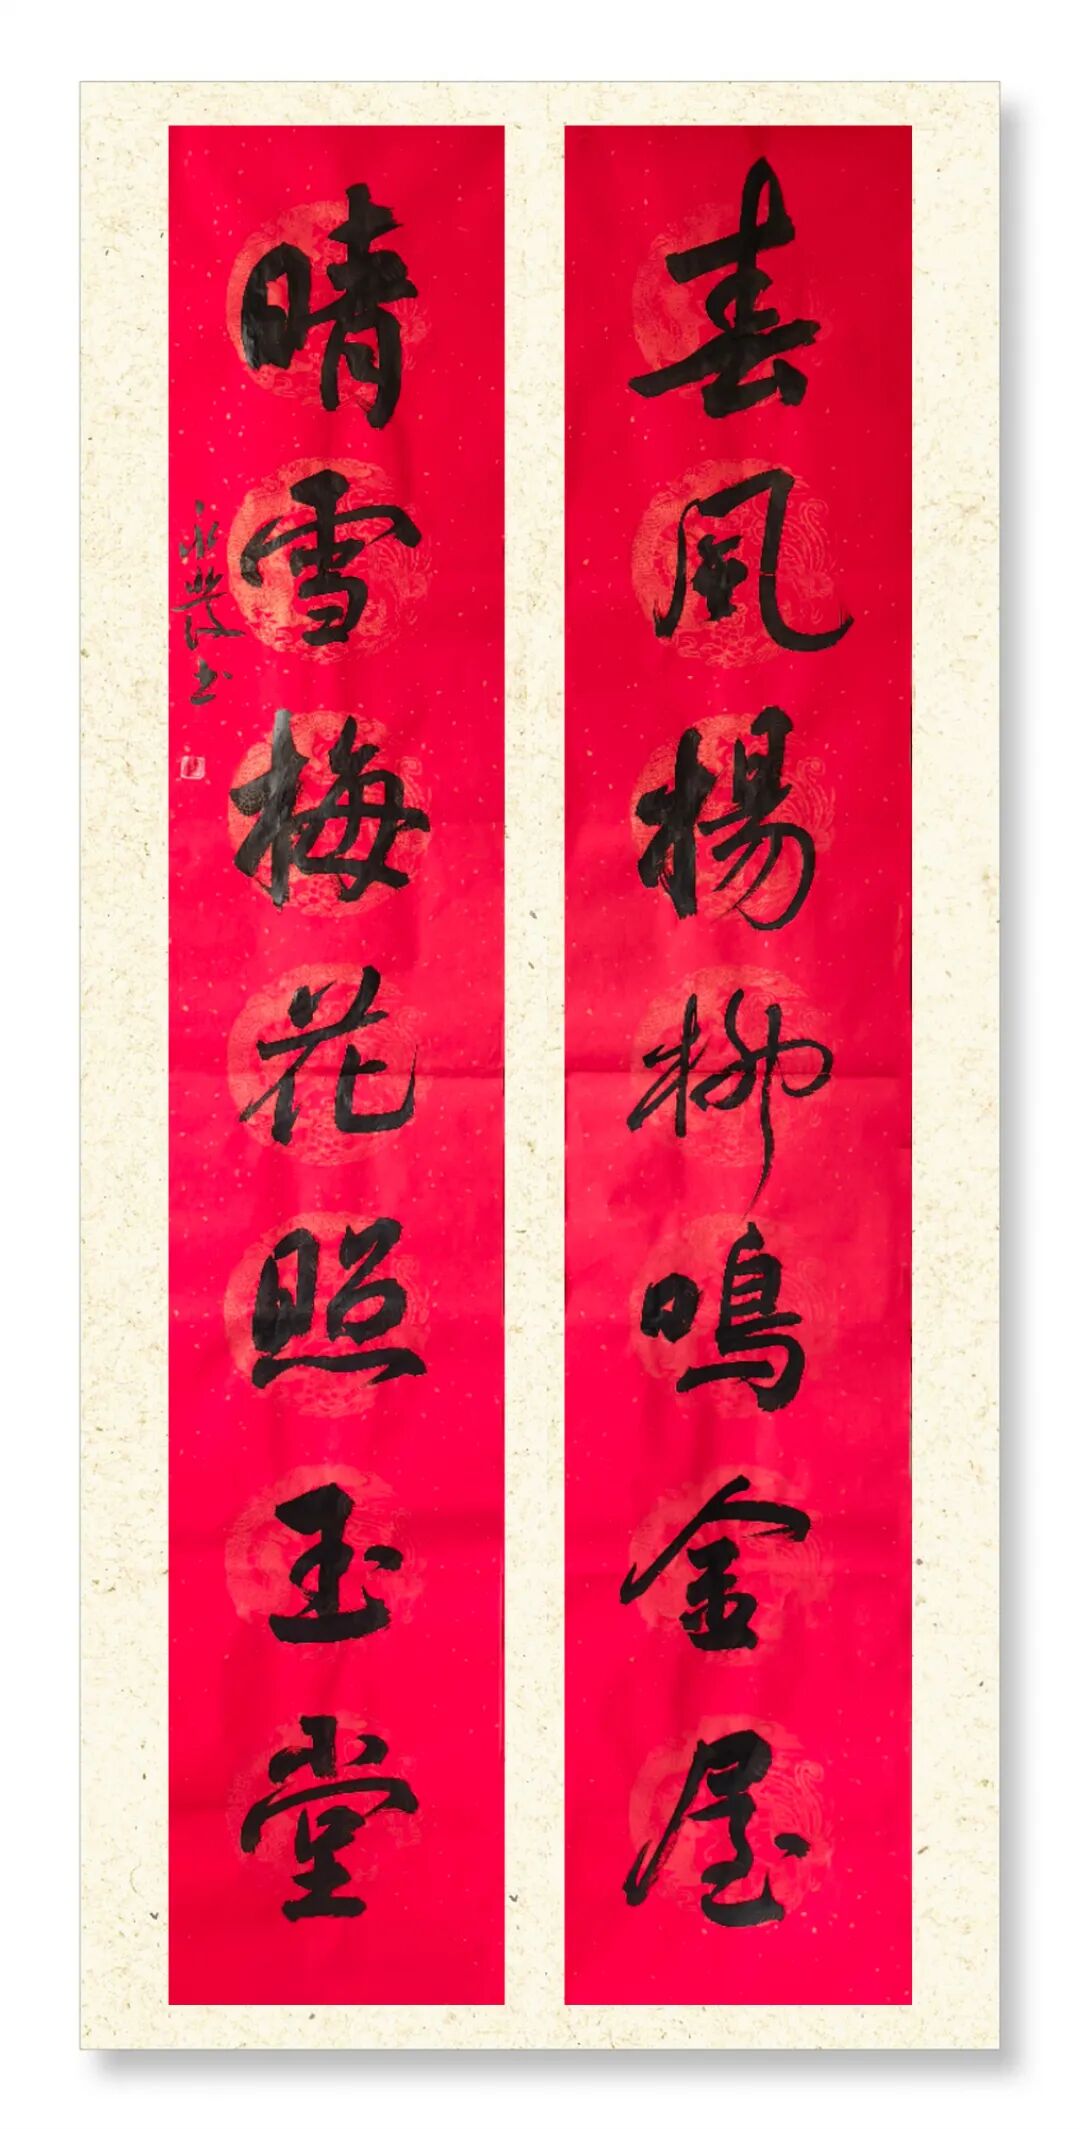 春風楊柳鳴金屋
晴雪梅花照玉堂